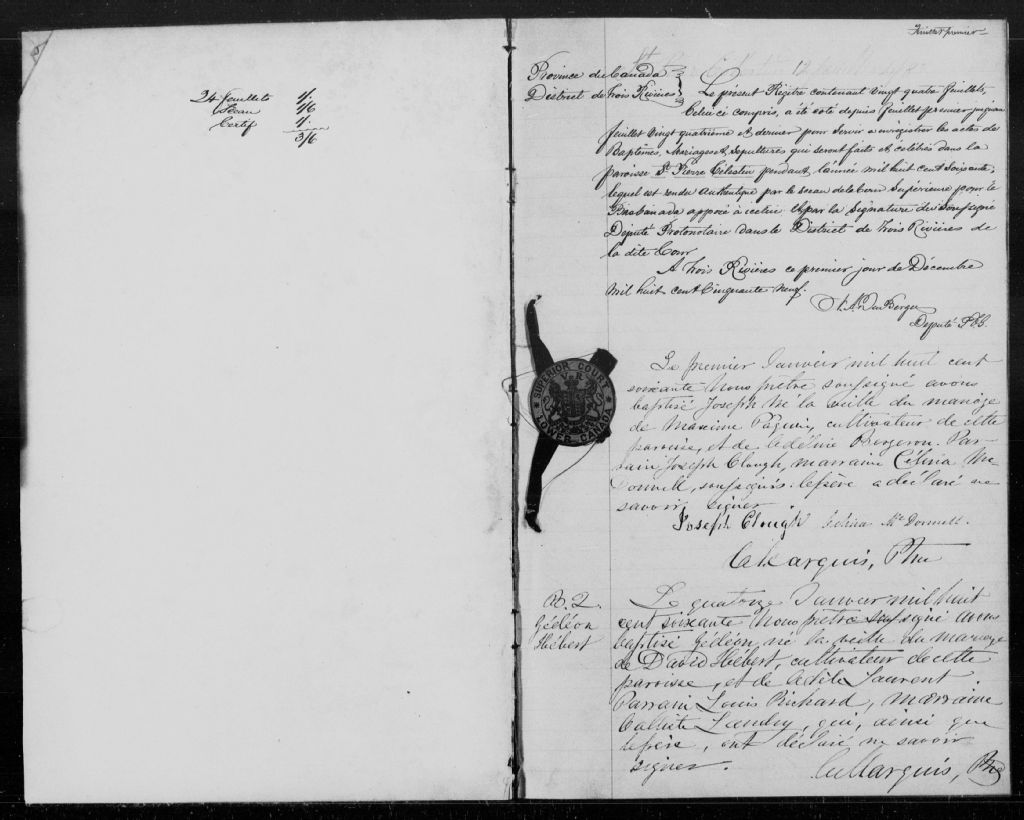 24 feuillets 1/.
Sceau 1/6
Certif 1/.
3/6
Feuillet premier
Province du Canada
District de Trois Rivières
Le présent Régitre contenant vingt quatre feuillets,
Celui ci compris, a été coté depuis feuillet premier jusqu'au
feuillet vingt quatrième et dernier pour servir a enrégistrer les actes de
Baptêmes, Mariages & Sépultures qui seront faits et célébrés dans la
paroisse St Pierre Célestin pendant l'année mil huit cent soixante,
lequel est rendu authentique par le sceau de la Cour Supérieure pour le
Bas Canada apposé à icelui & par la Signature du Soussigné
Député Protonotaire dans le District de Trois Rivières de
la dite Cour
A Trois Rivières ce premier jour de Décembre
mil huit cent Cinquante neuf.
Député P.C.S.
SUPERIOR COURT
V R
LOWER CANADA
Le premier Janvier mil huit cent
soixante Nous prêtre soussigné avons
baptisé Joseph né la veille du mariage
de Maxime Paquin, cultivateur de cette
paroisse, et de Adéline Bergeron. Par-
rain Joseph Clough, marraine Célina Mc
Donnell, soussignés. le père a déclaré ne
savoir signer.
Joseph Clough Selina Mc Donnell.
C. Marquis, Ptre
B. 2.
Gédéon
Hébert
Le quatorze Janvier mil huit
cent soixante Nous prêtre soussigné avons
baptisé Gédéon, né la veille du mariage
de David Hébert, cultivateur de cette
paroisse, et de Adèle Laurent
Parrain Louis Richard, marraine
Calliste Landry, qui, ainsi que
le père, ont déclaré ne savoir
signer.
C. Marquis, Ptre